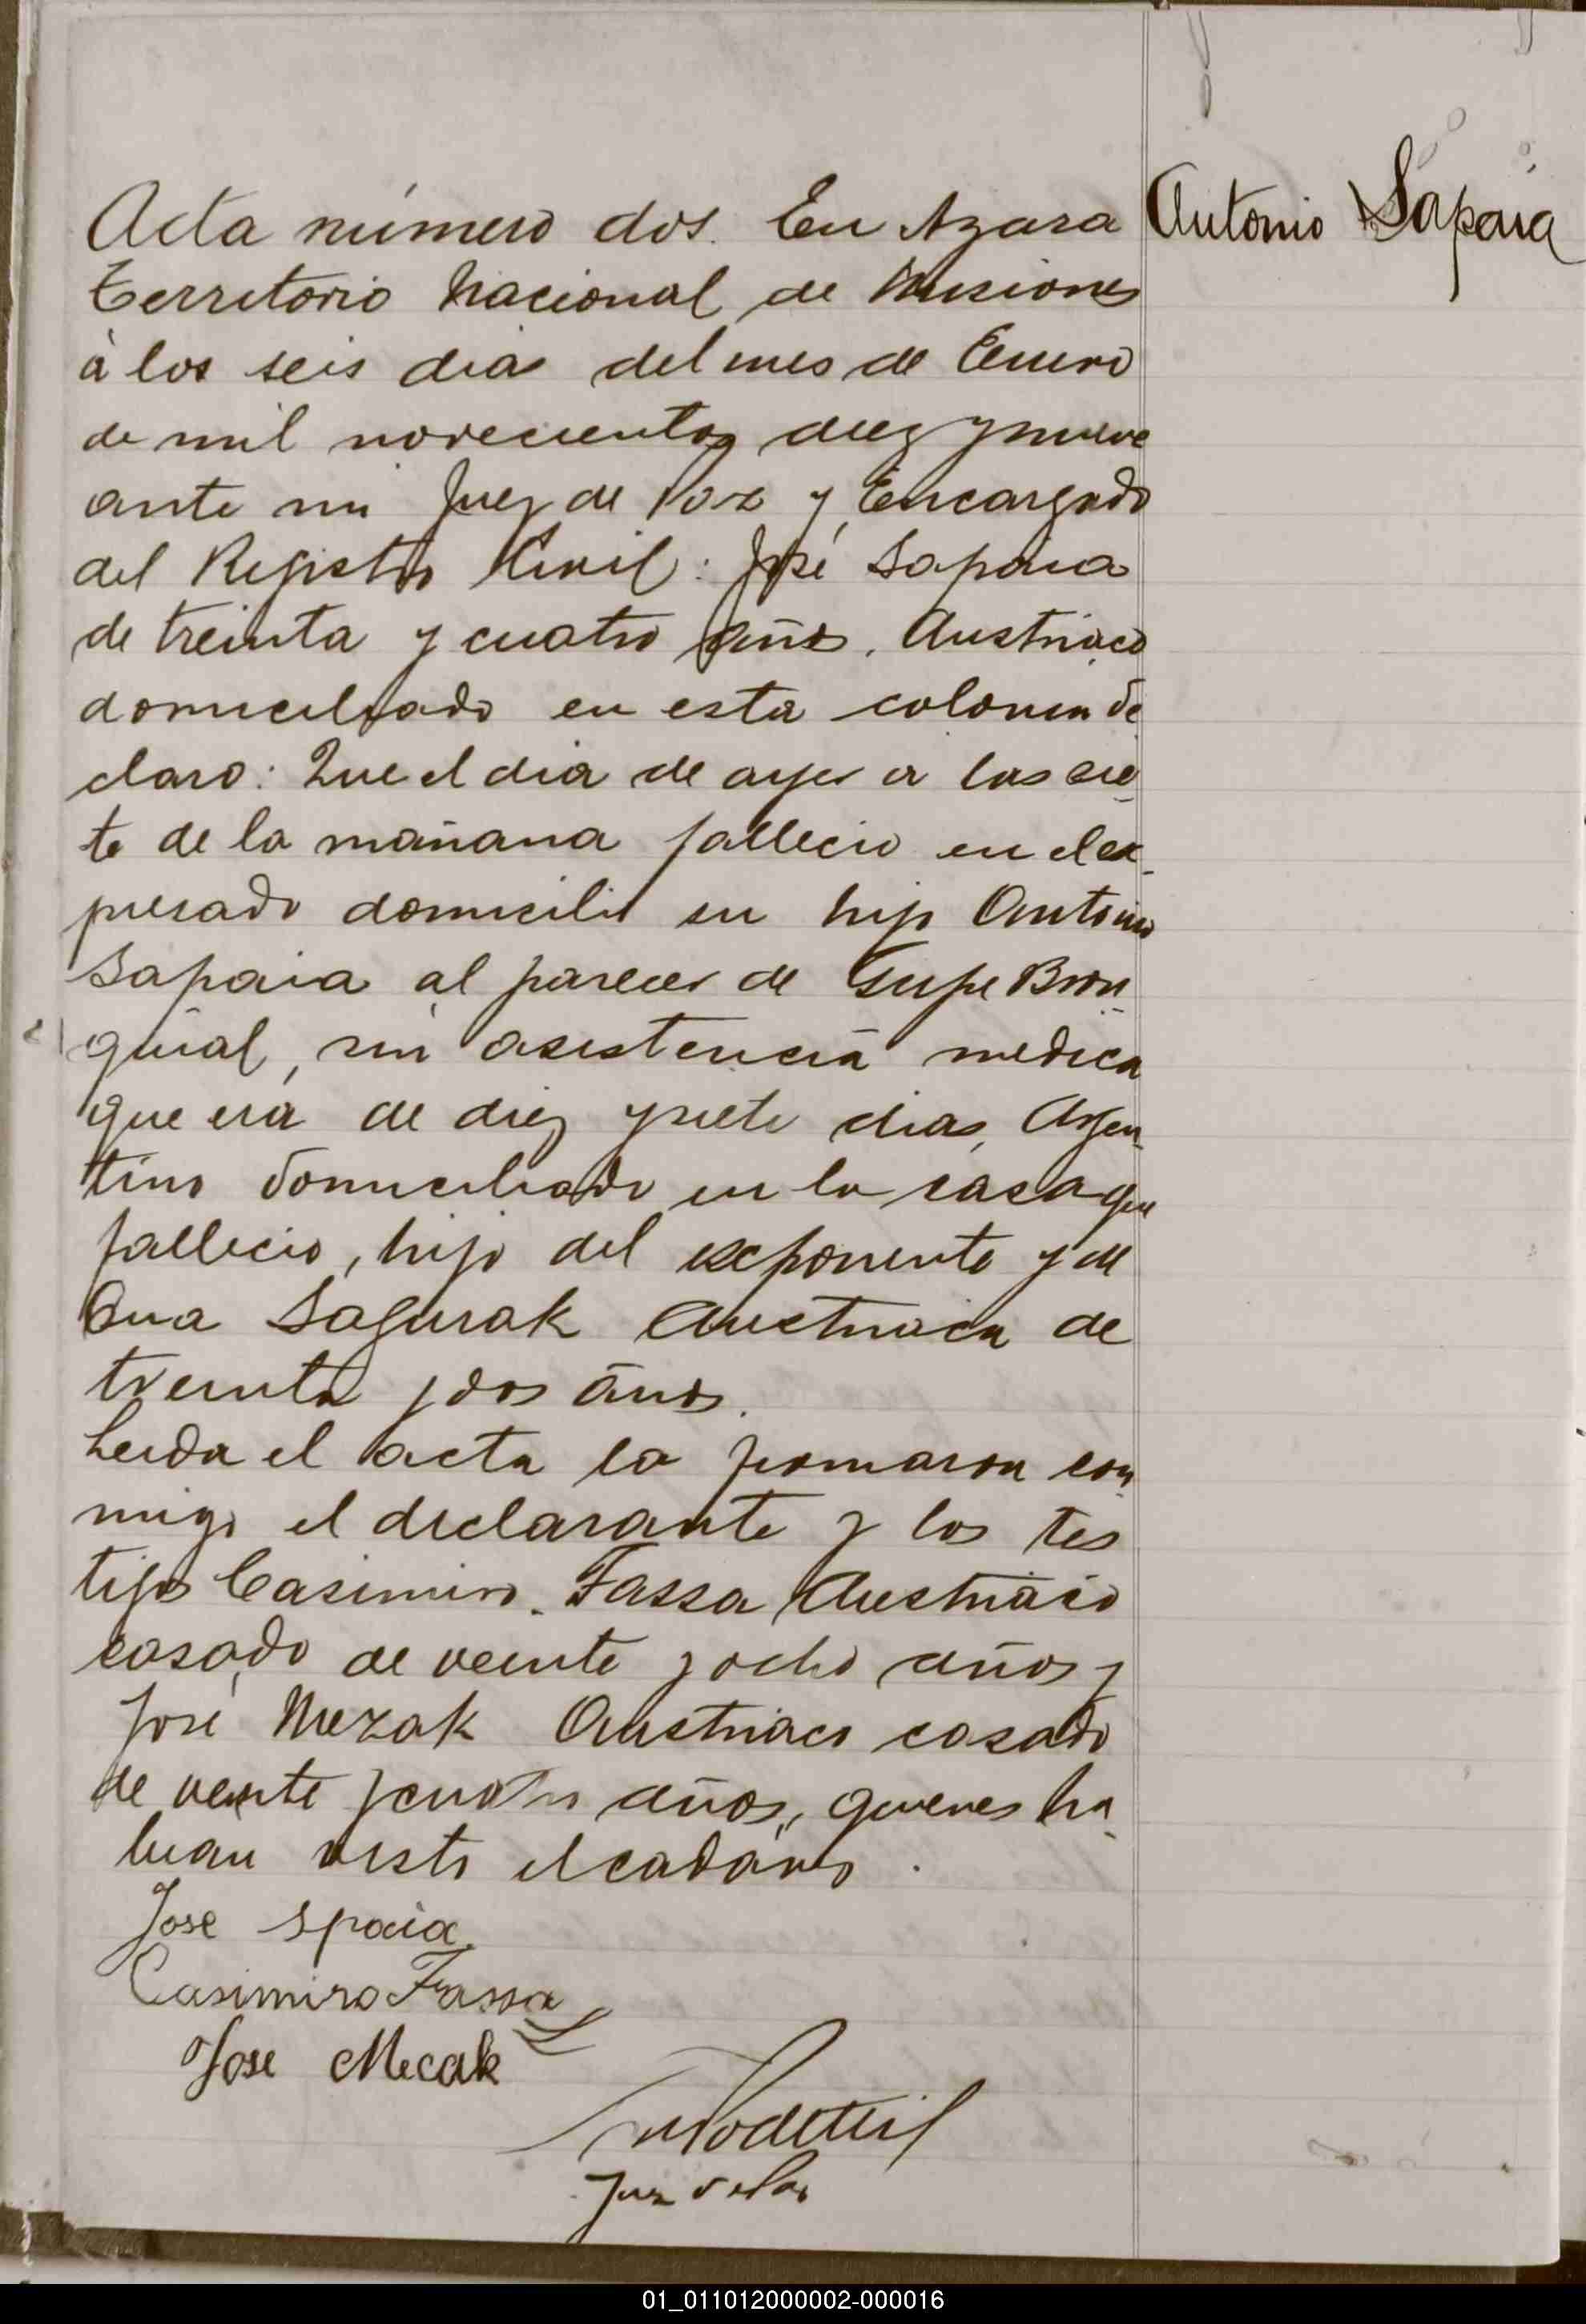 Acta número dos. En Azara
Antonio Sapaia
Territorio Nacional de Misiones
á los seis dias del mes de Enero
de mil novecientos diez y nueve
ante mi Juez de Paz y Encargado
del Registro Civil: José Sapaia
de treinta y cuatro años, Austriaco
domiciliado en esta colonia de
claro: Que el dia de ayer a las sie
te de la mañana fallecio en el ex_
presado domicilio su hijo Antonio
Sapaia al parecer de Gripe Bron
quial, sin asistencia medica
que era de diez y siete dias, Argen_
tino domiciliado en la casa que
fallecio, hijo del exponente y de
Ana Sagurak Austriaca de
treinta y dos años.
Leida el acta la firmaron con
migo el declarante y los tes
tigos Casimiro Fassa Austriaco
casado de veinte y ocho años y
José Mezak Austriaco casado
de veinte y cuatro años, quienes ha_
bian visto el cadáver.
Jose Spaia
Casimiro Fassa
Jose Mecak
Juez de Paz
01_011012000002-000016